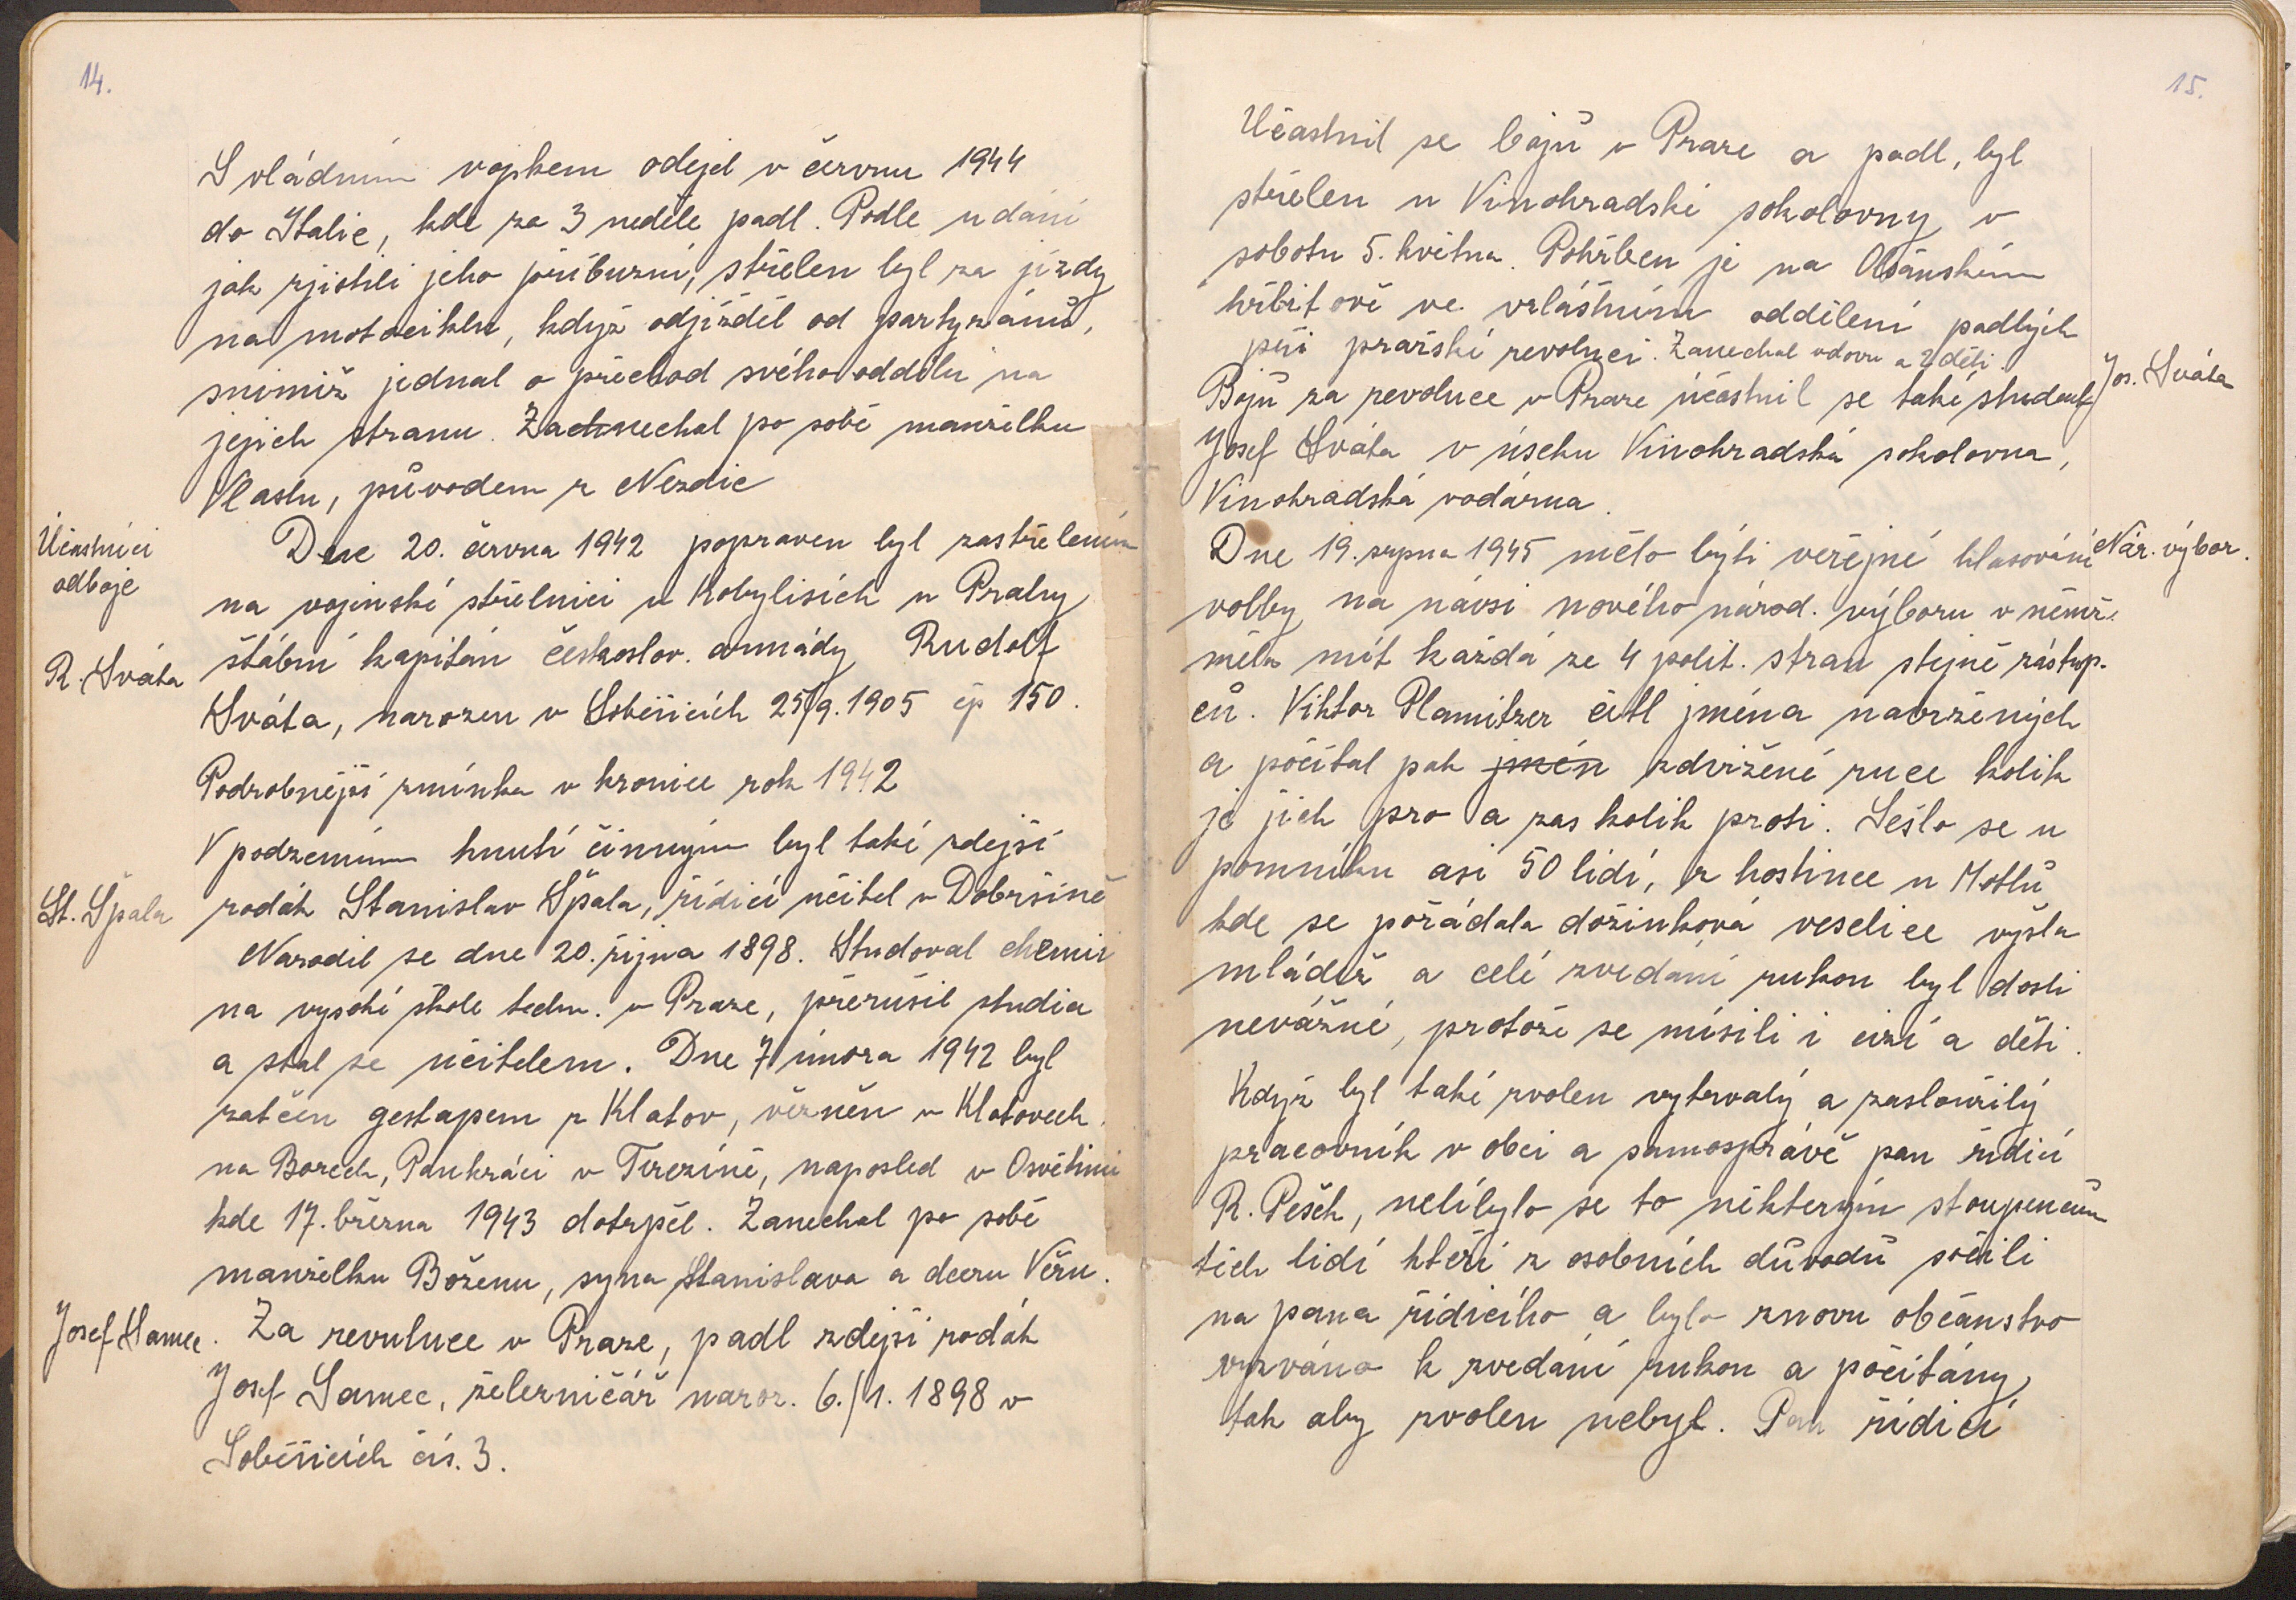 14.
S vládním vojskem odejel v červnu 1944
do Italie, kde za 3 neděle padl. Podle udání
jak zjistili jeho příbuzní, střelen byl za jízdy
na motociklu, když odjížděl od partyzánů,
snimiž jednal o přechod svého oddílu na
jejich stranu. Zachnechal po sobě manželku
Vlastu, původem z Nezdic
Účastníci
odboje
Dne 20. června 1942 popraven byl zastřelením
na vojenské střelnici u Kobylisích u Prahy
R. Sváta
štábní kapitán českoslov. armády Rudolf
Sváta, narozen v Soběšicích 25/9. 1905 čp 150.
Podrobnější zmínka v kronice rok 1942
V podzemním hnutí činným byl také zdejší
St. Špala
rodák Stanislav Špala, řídící učitel v Dobršíně
Narodil se dne 20. října 1898. Studoval chemii
na vysoké škole techn. v Praze, přerušil studia
a stal se učitelem. Dne 7 února 1942 byl
zatčen gestapem z Klatov, vězněn v Klatovech,
na Borech, Pankráci v Terezíně, naposled v Osvětimi
kde 17. března 1943 dotrpěl. Zanechal po sobě
manželku Boženu, syna Stanislava a dceru Věru.
Josef Samec.
Za revuluce v Praze, padl zdejší rodák
Josef Samec, železničář naroz. 6./1. 1898 v
Soběšicích čís. 3.
15.
Účastnil se bojů v Praze a padl, byl
střelen u Vinohradské sokolovny v
sobotu 5. května. Pohřben je na Olšanském
hřbitově ve vzláštním oddělení padlých
při pražské revoluci. Zanechal vdovu a 2 děti.
Jos. Sváta
Bojů za revoluce v Praze účastnil se také student
Josef Sváta v úseku Vinohradská sokolovna,
Vinohradská vodárna.
Nár. výbor.
Dne 19. srpna 1945 mělo býti veřejné hlasování
volby na návsi nového národ. výboru v němž
měla mít každá ze 4 polit. stran stejně zástup-
ců. Viktor Plamitzer četl jména navržených
a počítal pak jmén zdvižené ruce kolik
je jich pro a zas kolik proti. Sešlo se u
pomníku asi 50 lidí, z hostince u Motlů
kde se pořádala dožinková veselice vyšla
mládež a celé zvedání rukou byl dosti
nevážné, protože se mísili i cizí a děti.
Když byl také zvolen vytrvalý a zasloužilý
pracovník v obci a samosprávě pan řídící
R. Pešek, nelíbylo se to některým stoupencům
těch lidí kteří z osobních důvodů sočili
na pana řídicího a bylo znovu občanstvo
vyzváno k zvedání rukou a počítány,
tak aby zvolen nebyl. Pan řídící